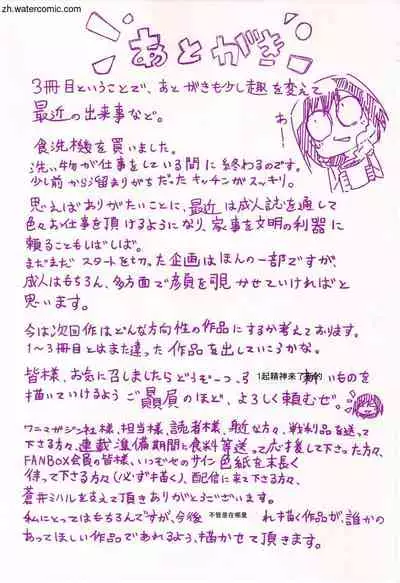 zh.watercomic.com
あとがき
3冊目ということで、あとがきも少し趣を変えて
最近の出来事など。
食洗機を買いました。
洗い物が仕事をしている間に終わるのです。
少し前から溜まりがちだったキッチンがスッキリ。
思えばありがたいことに、最近は成人誌を通して
色々お仕事を頂けるようになり、家事を文明の利器に
頼ることもしばしば。
まだまだスタートを切った企画はほんの一部ですが、
成人はもちろん、多方面で顔を覗かせていければと
思います。
今は次回作はどんな方向性の作品にするか考えております。
1〜3冊目とはまた違った作品を出していこうかな。
皆様、お気に召しましたらどうぞ一つ、
1起精神来了
いものを
描いていけるようご贔屓のほど、よろしく頼むぜ。
ワニマガジン社様、担当様、読者様、身近な方々、戦利品を送って
下さる方々、連載準備期間に食料等送って応援して下さった方々、
FANBOX会員の皆様、いつぞやのサイン色紙を末長く
待って下さる方々(必ず描く)、配信に来て下さる方々、
蒼井ミハルを支えて頂きありがとうございます。
私にとってはもちろんですが、今後
不管是在哪里
れ描く作品が、誰かの
あってほしい作品であれるよう、描かせて頂きます。